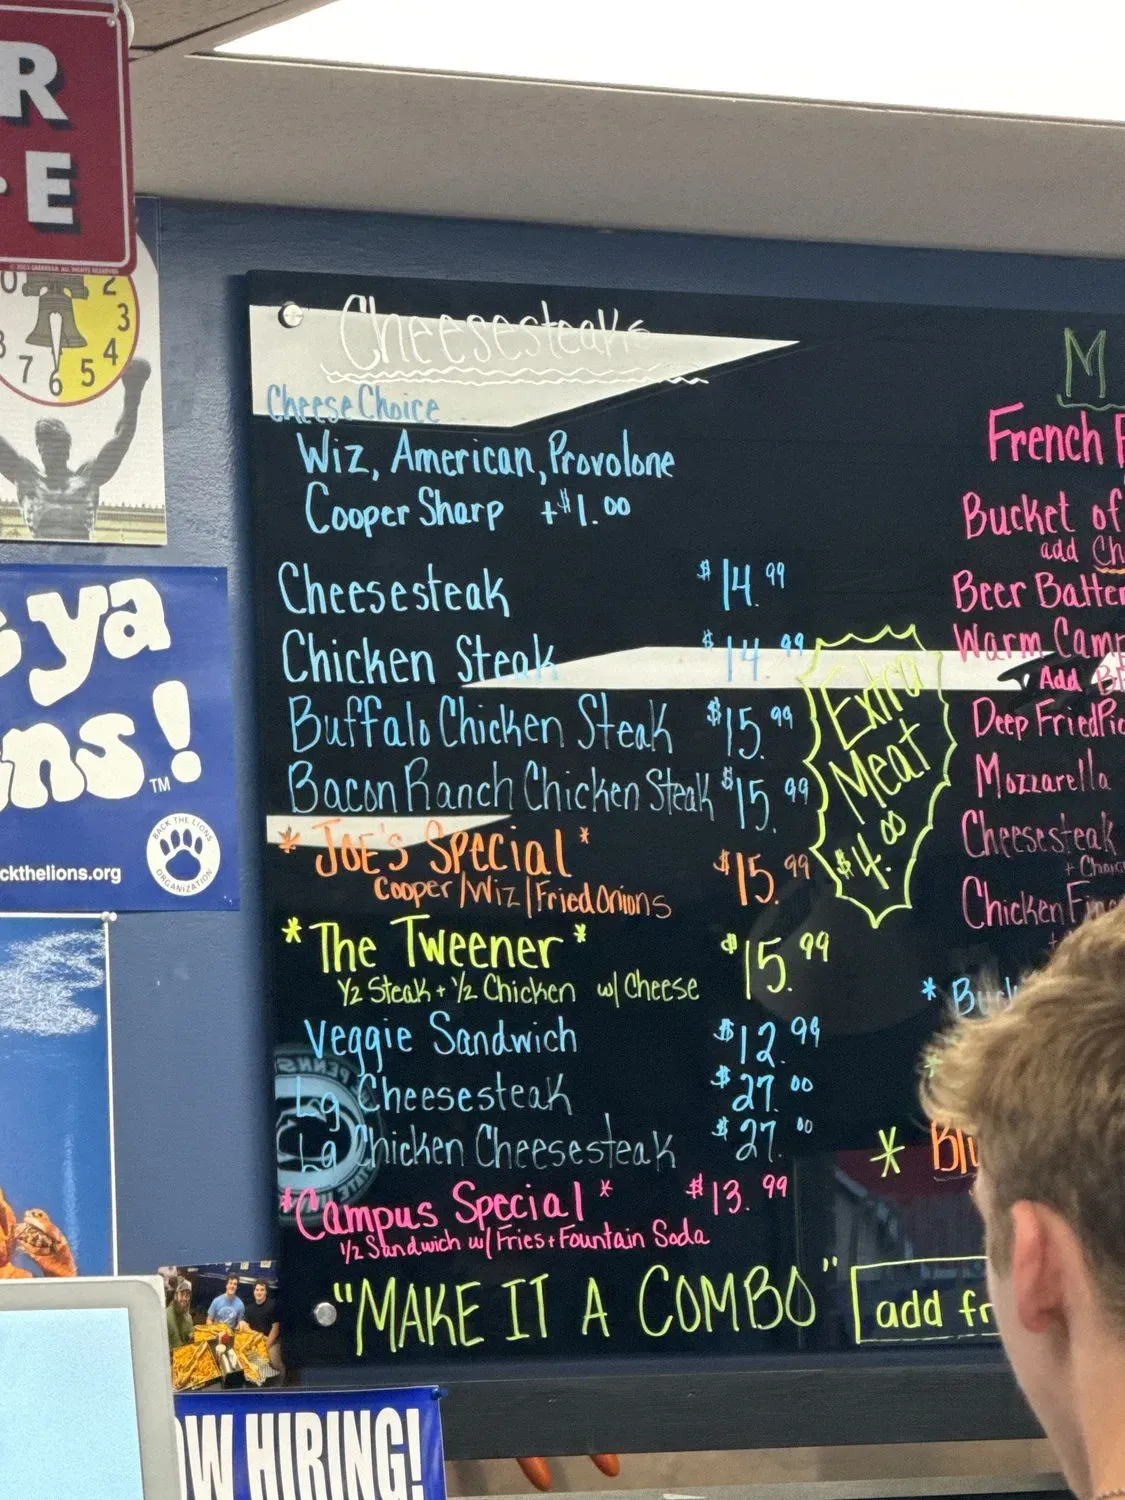 R
E
2
3
4
5
6
7
ya
ns! ™
BACK THE LIONS
ORGANIZATION
ckthelions.org
Cheesesteaks
Cheese Choice
Wiz, American, Provolone
Cooper Sharp +$1.00
Cheesesteak $14.99
Chicken Steak $14.99
Buffalo Chicken Steak $15.99
Bacon Ranch Chicken Steak $15.99
* JOE'S Special * $15.99
Cooper/Wiz/Fried Onions
* The Tweener * $15.99
1/2 Steak + 1/2 Chicken w/ Cheese
Veggie Sandwich $12.99
Lg Cheesesteak $27.00
Lg Chicken Cheesesteak $27.00
*Campus Special * $13.99
1/2 Sandwich w/ Fries + Fountain Soda
"MAKE IT A COMBO" add fr
Extra
Meat
$4.00
M
French F
Bucket of
add Ch
Beer Batter
Warm Camp
Add Bl
Deep Fried Pic
Mozzarella
Cheesesteak
+ Choic
Chicken Fing
* Buck
* Blu
OW HIRING!